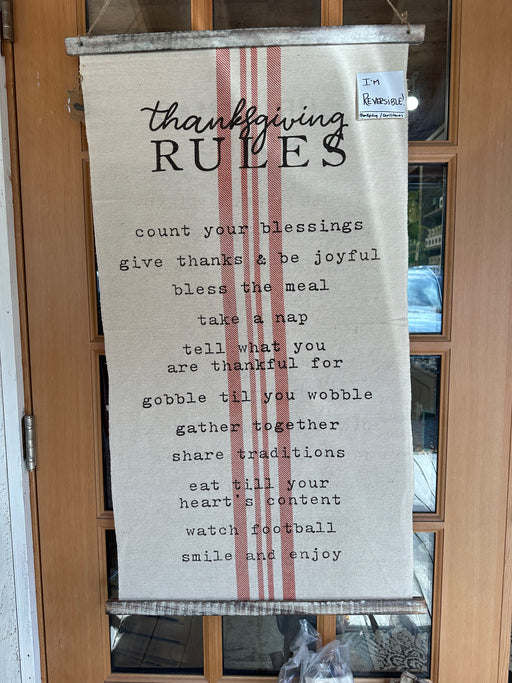 thanksgiving
RULES
I'M
REVERSIBLE!
Thanksgiving / Christmas
count your blessings
give thanks & be joyful
bless the meal
take a nap
tell what you
are thankful for
gobble til you wobble
gather together
share traditions
eat till your
heart's content
watch football
smile and enjoy